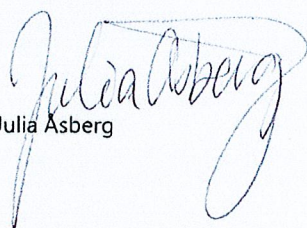 Julia Asberg
Julia Åsberg